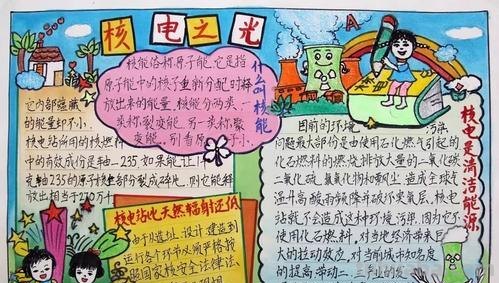 核电之光
什么叫核能
核能俗称原子能，它是指
原子能中的核子重新分配时释
放出来的能量，核能分两类，一
类称裂变能，另一类称聚
变能，别看原子小
它内部蕴藏
的能量却不小。
核电站所用的核燃料
中的有效成份是铀-235，如果能让
铀235的原子核全部分裂成碎片，则它能释
放出相当于270万个
核电站比天然辐射还低
由于从选址、设计、建造到
运行各个环节必须严格执
照国家核安全法律法
目前的环境 污染
问题最大部份是由使用石化燃气引起的
化石燃料的燃烧排放大量的二氧化碳
二氧化硫、氮氧化物和粉尘，造成全球气
温升高、酸雨频降并破坏臭氧层，核电
站就不会造成这种环境污染，因为它不
使用化石燃料，对当地经济带来巨
大的拉动效应，对当前城市知名度
的提高，带动二、三产业的发
核电是清洁能源